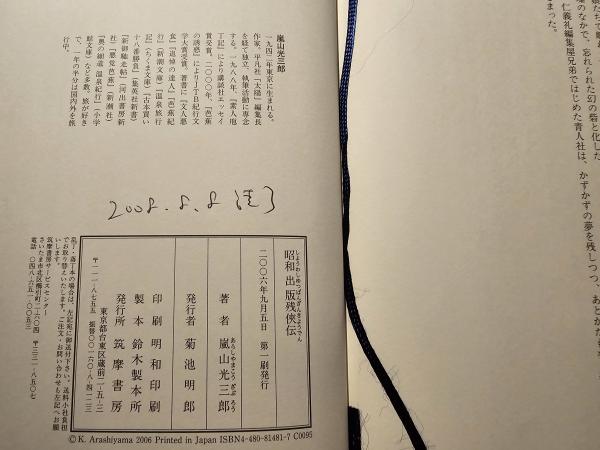 嵐山光三郎
一九四二年東京に生まれる。
作家。平凡社「太陽」編集長
を経て独立、執筆活動に専念
する。一九八八年、『素人庖
丁記』により講談社エッセイ
賞受賞。二〇〇〇年、『芭蕉
の誘惑』によりJTB紀行文
学大賞受賞。著書に『文人悪
食』『追悼の達人』『芭蕉紀
行』（新潮文庫）『温泉旅行
記』（ちくま文庫）『古本買い
十八番勝負』（集英社新書）
『新御馳走帖』（河出書房新
社）『悪党芭蕉』（新潮社）
『奥の細道 温泉紀行』（小学
館文庫）など多数。旅が好き
で、一年の半分は国内外を旅
行中。
2008.8.8
昭和出版残侠伝
しょうわしゅっぱんざんきょうでん
二〇〇六年九月五日 第一刷発行
著者 嵐山光三郎
あらしやまこうざぶろう
発行者 菊池明郎
印刷 明和印刷
製本 鈴木製本所
発行所 筑摩書房
東京都台東区蔵前二-五-三
〒一一一-八七五五 振替〇〇一六〇-八-四一二三
乱丁・落丁本の場合は、左記宛に御送付下さい。送料小社負担
でお取り替えいたします。ご注文・お問い合わせも左記へお願
いします。
筑摩書房サービスセンター
さいたま市北区櫛引町二-六〇四 〒三三一-八五〇七
電話 〇四八-六五一-〇〇五三
©K. Arashiyama 2006 Printed in Japan ISBN4-480-81481-7 C0095
のなかで、忘れられた幻の砦と化した
仁義礼編集屋兄弟ではじめた青人社は、かずかずの夢を残しつつ、あとかたも
まった。